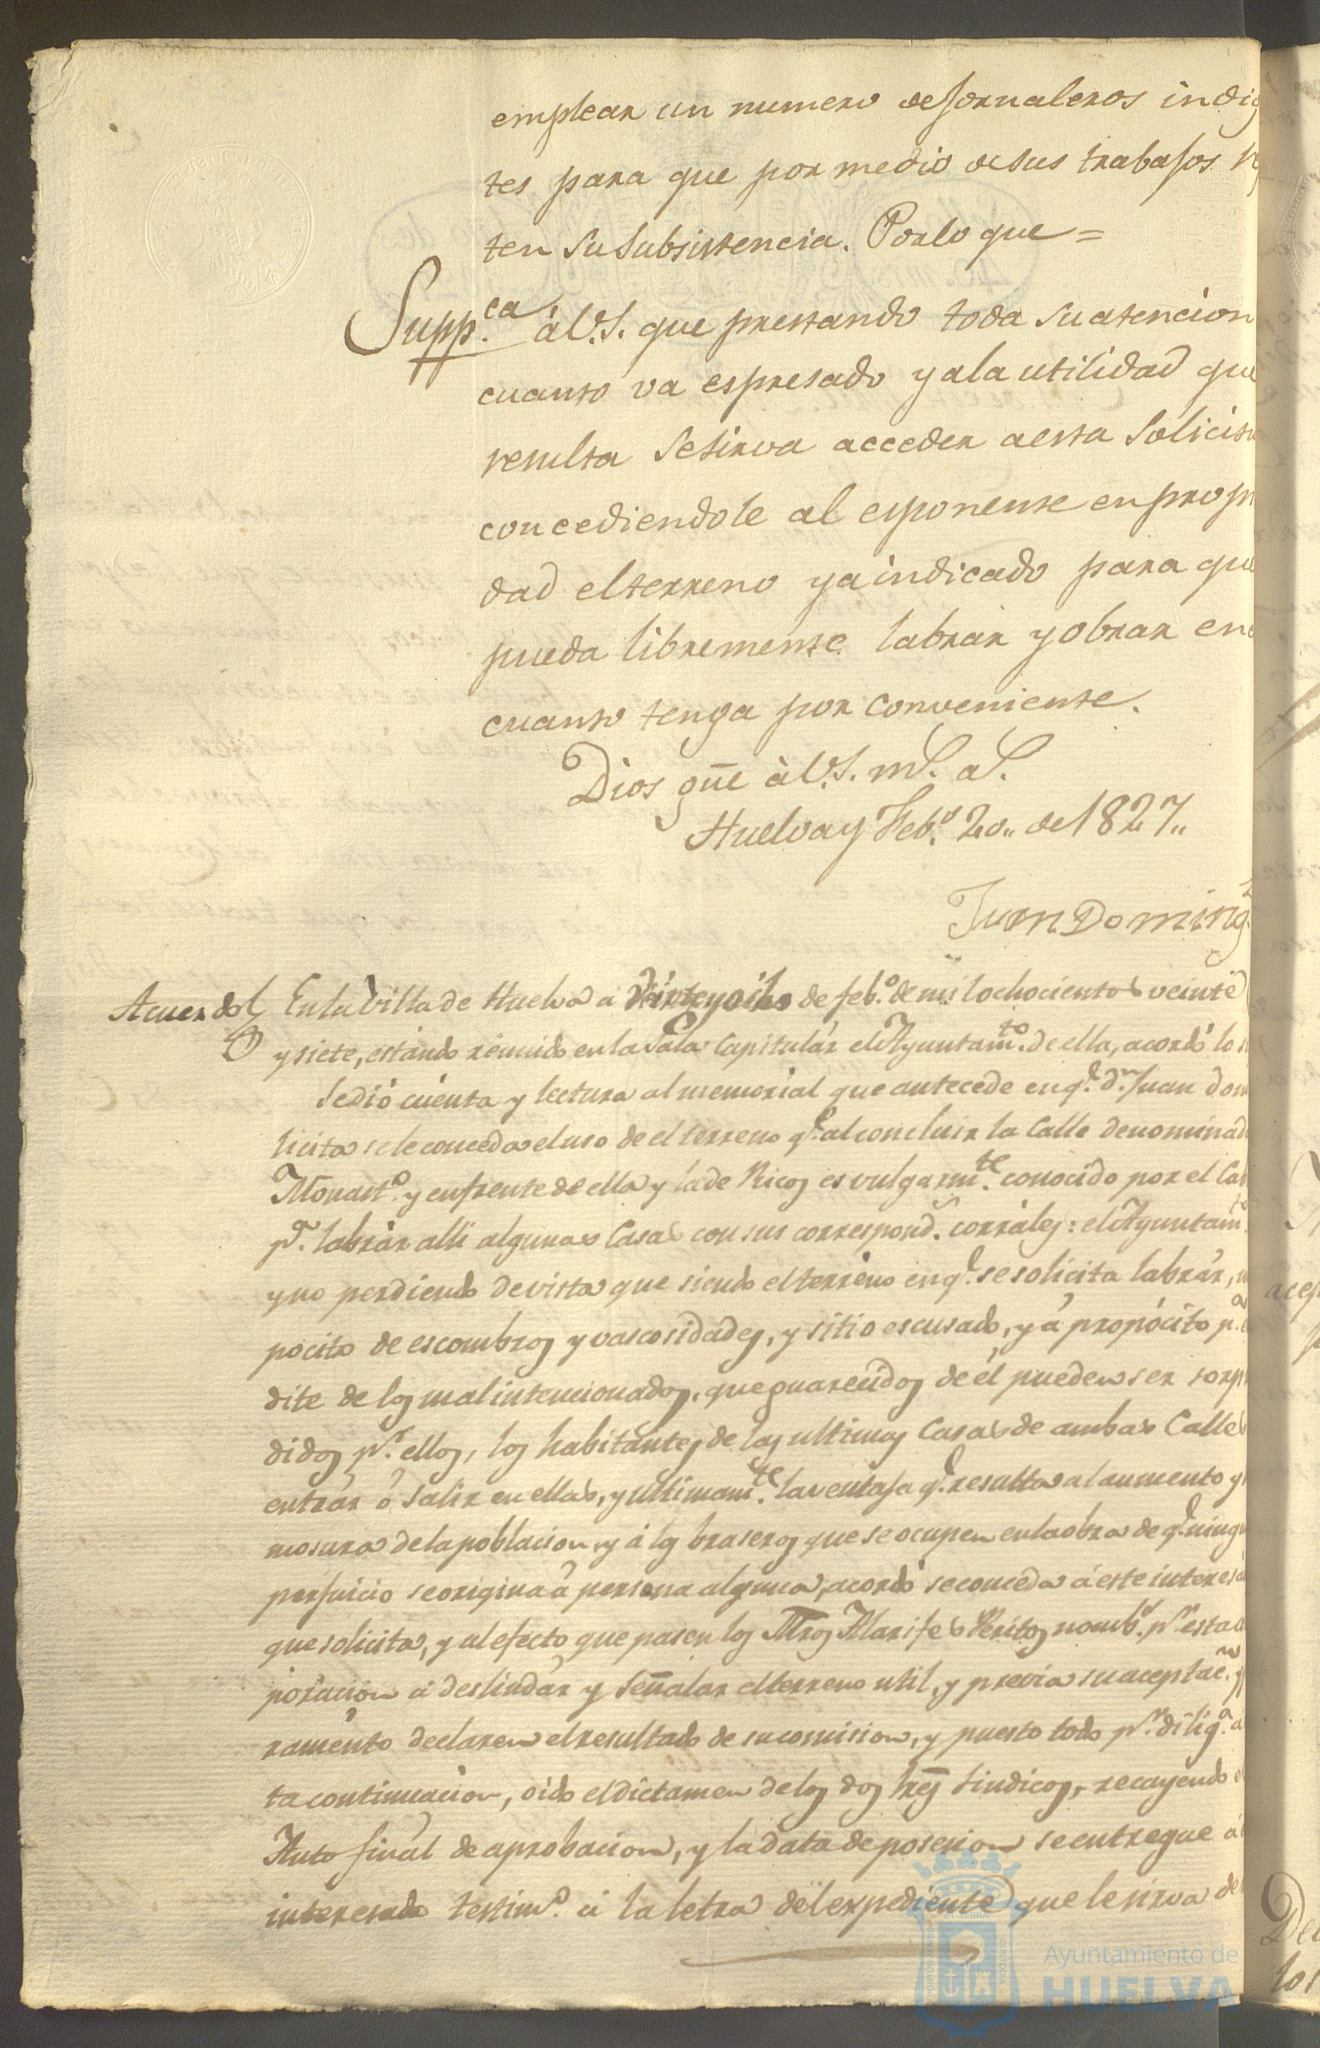 emplear un numero de jornaleros indig
tes para que por medio de sus trabajos
ten su subsistencia. Por lo que =
Supp.ca à V.S. que prestando toda su atencion
cuanto va espresado y ala utilidad que
resulta se sirva acceder a esta solicitu
concediendole al esponente en propi
dad el terreno ya indicado para que
pueda libremente labrar y obrar en
cuanto tenga por conveniente.
Dios gue à V.S. ms. as.
Huelva y Feb.o 20.. de 1827..
Juan Doming
Acuerdo En la villa de Huelva a de feb.o de mil ochocientos veinte
y siete, estando reunido en la Sala Capitular el Ayuntam.to de ella, acordó lo
se dió cuenta y lectura al memorial que antecede en q.e d.n Juan dom
licita se le conceda el uso de el terreno q.e al concluir la Calle denominad
Monast.o y enfrente de ella y la de Ricos es vulgarm.te conocido por el Ca
p.a labrar alli algunas Casas con sus correspond.s corrales: el Ayuntam.to
y no perdiendo de vista que siendo el terreno en q.e se solicita labrar,
pocito de escombros y vascosidades, y sitio escusado, y á propócito p.a
dite de los mal intencionados, que guarecidos de él pueden ser sorp
didos p.r ellos, los habitantes de las ultimas Casas de ambas Calles
entrar ó salir en ellas, y ultimam.te la ventaja q.e resulta al aumento y
mosura de la poblacion, y á los braseros que se ocupen en la obra de q.e ning
perjuicio se origina á persona alguna, acordó se conceda á este interesa
que solicita, y al efecto que pasen los Mros Alarifes Peritos nomb.s p.r esta
poracion á deslindar y señalar el terreno util, y previa su aceptac.n y
ramento declaren el resultado de su comision, y puesto todo p.r dilig.a a
ta continuacion, oido el dictamen de los dos Sres Sindicos, recayendo
Auto final de aprobacion, y la data de posesion se entregue á
interesado testim.o á la letra del expediente que le sirva de
Ayuntamiento de
HUELVA